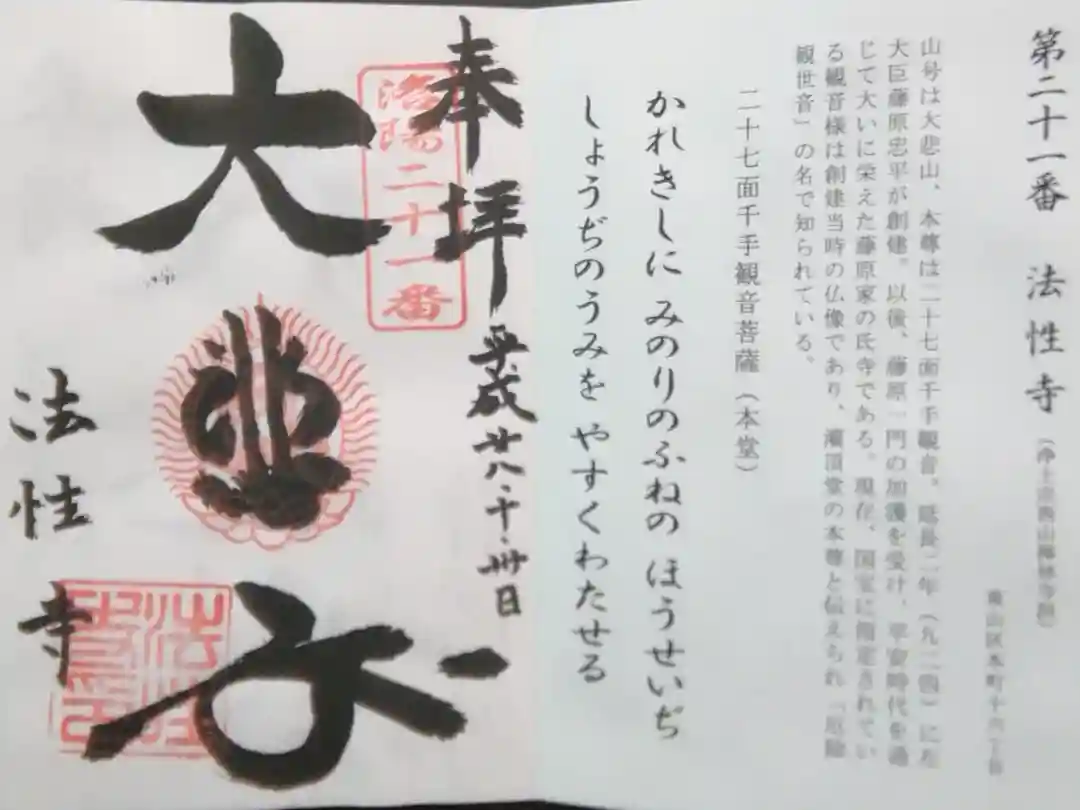 第二十一番 法性寺(浄土宗西山禅林寺派)
東山区本町十六丁目
山号は大悲山、本尊は二十七面千手観音。延長二年(九二四)に左
大臣藤原忠平が創建。以後、藤原一門の加護を受け、平安時代を通
じて大いに栄えた藤原家の氏寺である。現在、国宝に指定されてい
る観音様は創建当時の仏像であり、灌頂堂の本尊と伝えられ「厄除
観世音」の名で知られている。
二十七面千手観音菩薩(本堂)
かれきしに みのりのふねの ほうせいぢ
しょうぢのうみを やすくわたせる
奉拝
平成廿八・十・卅日
洛陽二十一番
大悲
法性寺